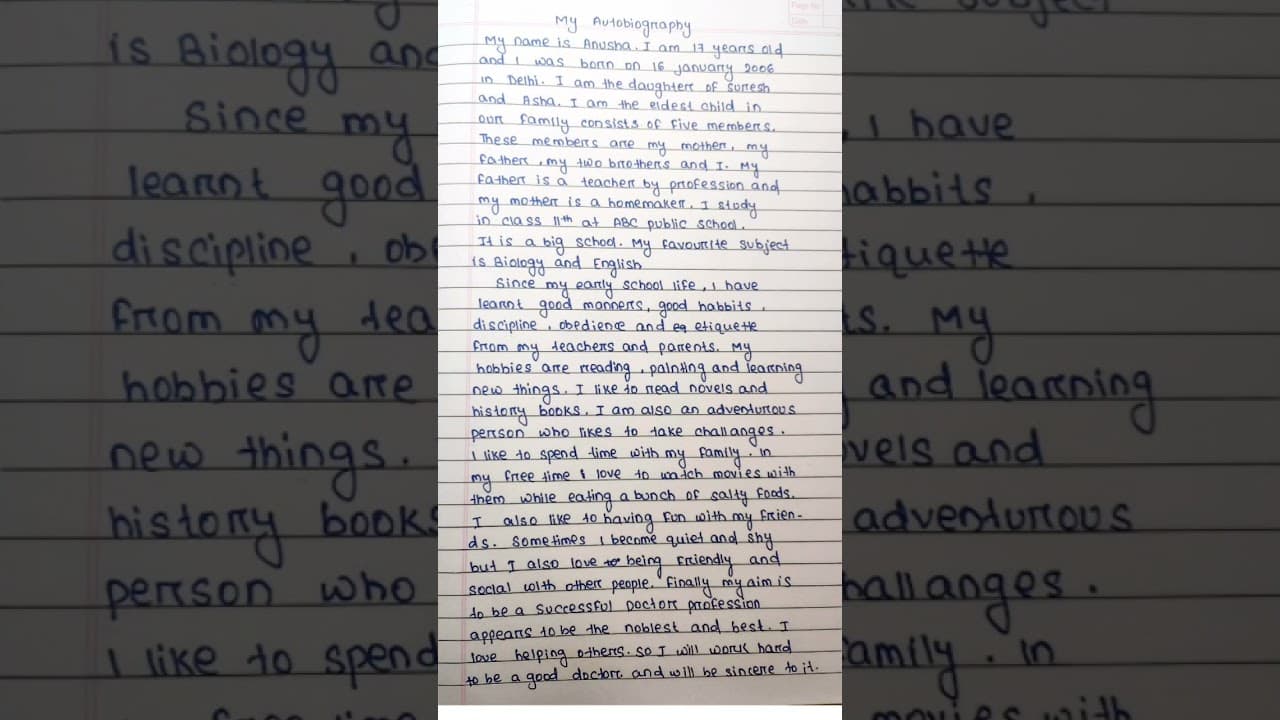 Page No
Date
My Autobiography
My name is Anusha. I am 17 years old
and I was born on 16 january 2006
in Delhi. I am the daughter of Suresh
and Asha. I am the eldest child in
our family consists of five members.
These members are my mother, my
father, my two brothers and I. My
father is a teacher by profession and
my mother is a homemaker. I study
in class 11th at ABC public school.
It is a big school. My favourite subject
is Biology and English
Since my early school life, I have
learnt good manners, good habbits,
discipline, obedience and eq etiquette
from my teachers and parents. My
hobbies are reading, painting and learning
new things. I like to read novels and
history books. I am also an adventurous
person who likes to take challanges.
I like to spend time with my family. in
my free time I love to watch movies with
them while eating a bunch of salty foods.
I also like to having fun with my frien-
ds. Sometimes I become quiet and shy
but I also love to being friendly and
social with other people. Finally my aim is
to be a successful Doctor profession
appears to be the noblest and best. I
love helping others. So I will work hard
to be a good doctor. and will be sincere to it.